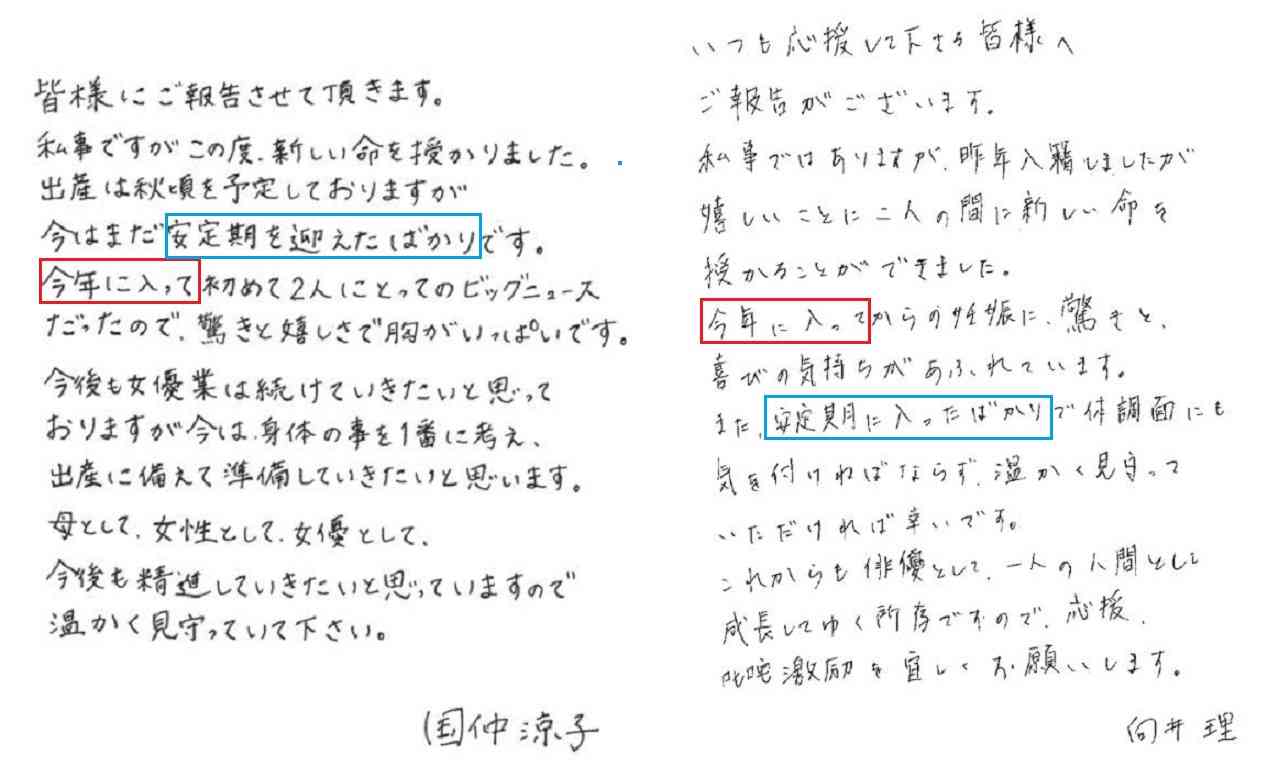 皆様にご報告させて頂きます。
私事ですがこの度、新しい命を授かりました。
出産は秋頃を予定しておりますが
今はまだ安定期を迎えたばかりです。
今年に入って初めて2人にとってのビッグニュース
だったので、驚きと嬉しさで胸がいっぱいです。
今後も女優業は続けていきたいと思って
おりますが今は、身体の事を1番に考え、
出産に備えて準備していきたいと思います。
母として、女性として、女優として、
今後も精進していきたいと思っていますので
温かく見守っていて下さい。
国仲涼子
いつも応援して下さる皆様へ
ご報告がございます。
私事ではありますが、昨年入籍しましたが
嬉しいことに二人の間に新しい命を
授かることができました。
今年に入ってからの妊娠に、驚きと、
喜びの気持ちがあふれています。
また、安定期に入ったばかりで体調面にも
気を付ければならず、温かく見守って
いただければ幸いです。
これからも俳優として、一人の人間として
成長してゆく所存ですので、応援、
叱咤激励を宜しくお願いします。
向井理